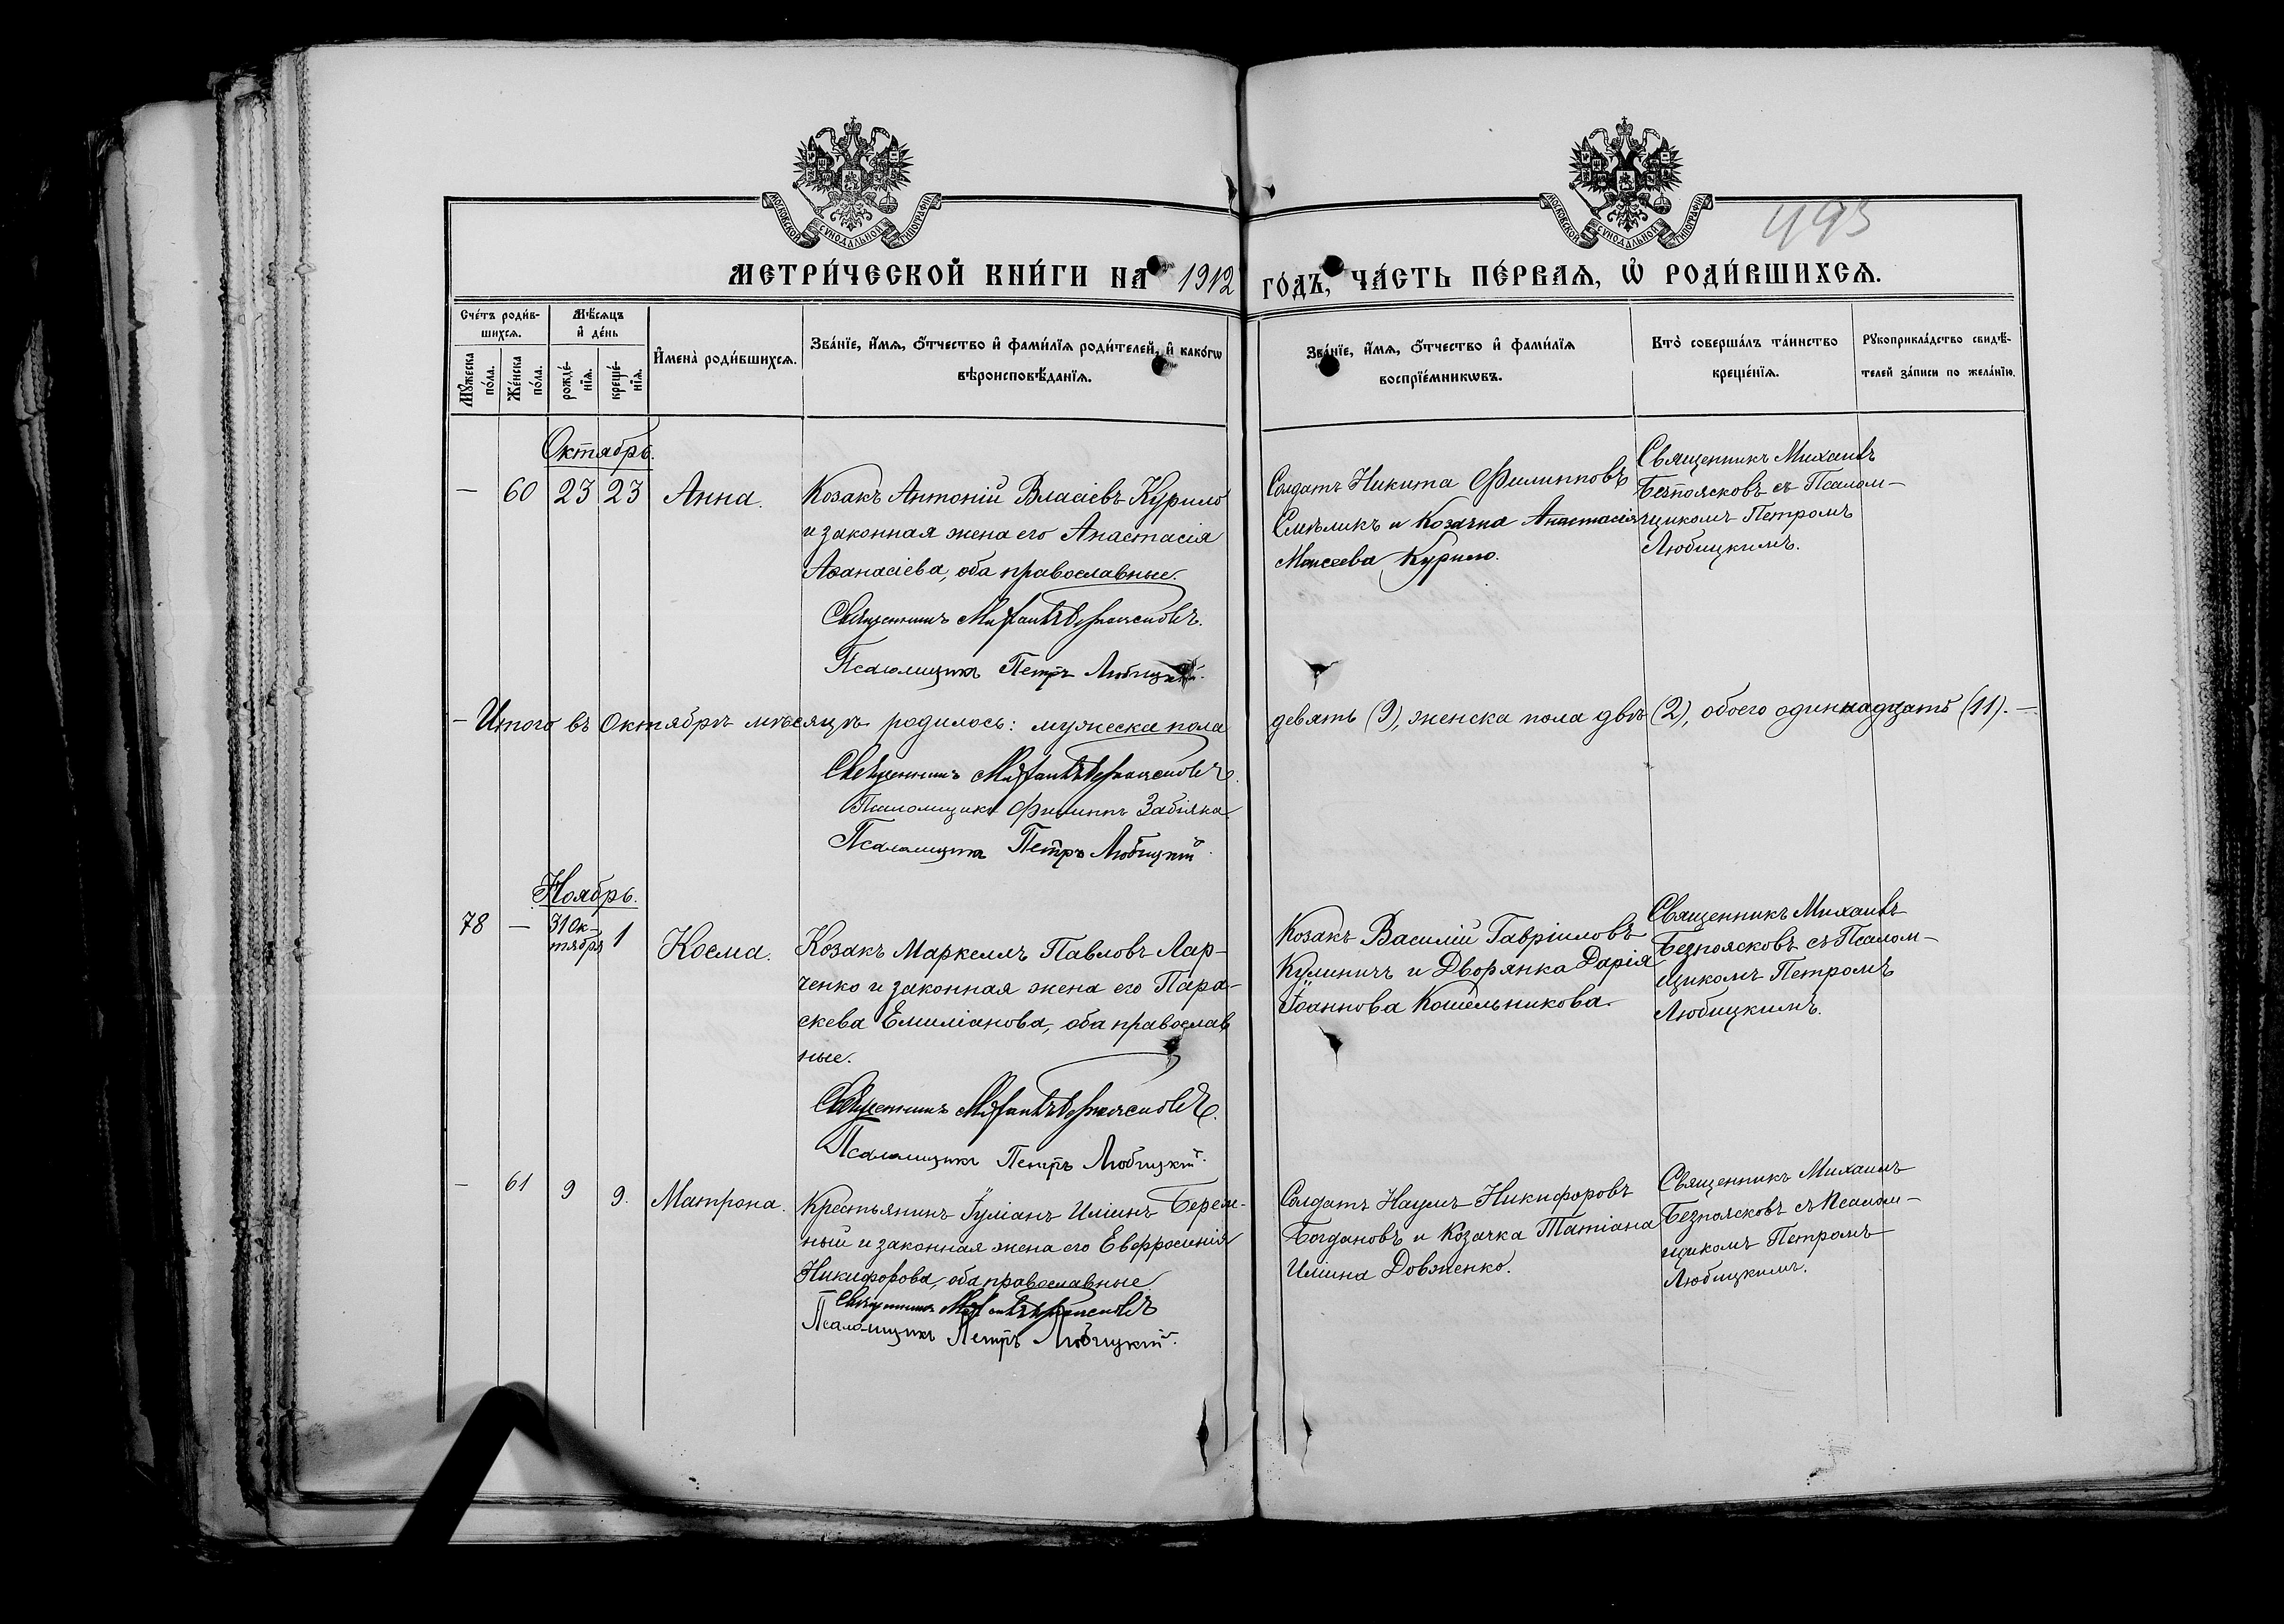 МОСКОВСКОЙ СУНОДАЛЬНОЙ ТИПОГРАФІИ
МОСКОВСКОЙ СУНОДАЛЬНОЙ ТИПОГРАФІИ
493
МЕТРИ́ЧЕСКОЙ КНИ́ГИ НА 1912 ГО́ДЪ, ЧА́СТЬ ПЕ́РВАЯ, Ѡ҆ РОДИ́ВШИХСЯ.
Сче́тъ роди́в-
шихся.
Мꙋ́жеска по́ла.
Же́нска по́ла.
Мѣ́сяцъ
и҆ де́нь
рожде́-
нїя.
креще́-
нїя.
И҆мена̀ роди́вшихся.
Зва́нїе, и҆́мя, ѻ҆́тчество и҆ фами́лїя роди́телей, и҆ како́гѡ
вѣроисповѣ́данїя.
Зва́нїе, и҆́мя, ѻ҆́тчество и҆ фами́лїя
воспрїе́мникѡвъ.
Кто̀ соверша́лъ та́инство
креще́нїя.
Рꙋкоприкла́дство свидѣ́-
телей за́писи по жела́нїю.
Октябрь.
— 60 23 23 Анна.
Козакъ Антоній Власіевъ Курило
и законная жена его Анастасія
Аѳанасіева, оба православные.
Священникъ Михаилъ Безпоясковъ.
Псаломщикъ Петръ Любицкій.
Солдатъ Никита Филипповъ
Смѣликъ и Козачка Анастасія
Моисеева Курило.
Священникъ Михаилъ
Безпоясковъ съ Псалом-
щикомъ Петромъ
Любицкимъ.
— Итого въ Октябрѣ мѣсяцѣ родилось: мужеска пола девять (9), женска пола двѣ (2), обоего одиннадцать (11). —
Священникъ Михаилъ Безпоясковъ.
Псаломщикъ Филиппъ Забіяка
Псаломщикъ Петръ Любицкій.
Ноябрь.
78 — 31 Ок-
тября 1 Косма.
Козакъ Маркеллъ Павловъ Лар-
ченко и законная жена его Пара-
скева Емиліанова, оба православ
ные.
Священникъ Михаилъ Безпоясковъ.
Псаломщикъ Петръ Любицкій.
Козакъ Василій Гавріиловъ
Кулиничъ и Дворянка Дарія
Іоаннова Кошельникова.
Священникъ Михаилъ
Безпоясковъ съ Псалом-
щикомъ Петромъ
Любицкимъ.
— 61 9 9. Матрона.
Крестьянинъ Іуліанъ Иліинъ Берем-
ный и законная жена его Евфросинія
Никифорова, оба православные
Священникъ Михаилъ Безпоясковъ
Псаломщикъ Петръ Любицкій.
Солдатъ Наумъ Никифоровъ
Богдановъ и Козачка Татіана
Иліина Довженко.
Священникъ Михаилъ
Безпоясковъ съ Псалом-
щикомъ Петромъ
Любицкимъ.